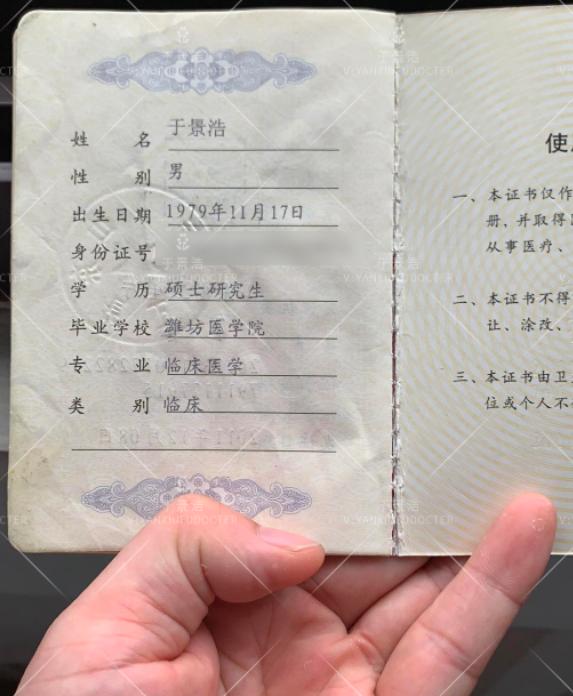 姓 名 于景浩
性 别 男
出生日期 1979年11月17日
身份证号
学 历 硕士研究生
毕业学校 潍坊医学院
专 业 临床医学
类 别 临床
使
一、本证书仅作
册,并取得
从事医疗、
二、本证书不得
让、涂改、
三、本证书由卫
位或个人不
于景浩
V:YANZHIFUDOCTER